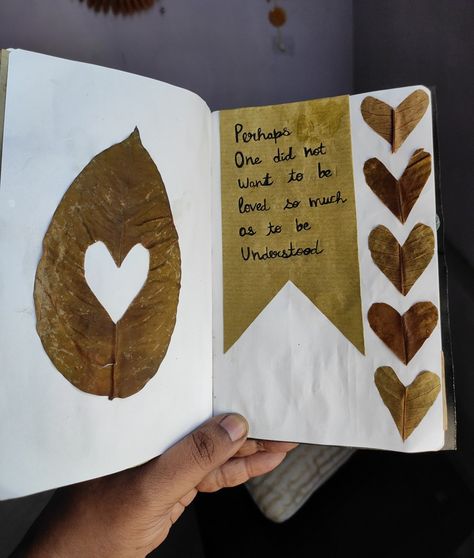 Perhaps
One did not
Want to be
loved so much
as to be
Understood